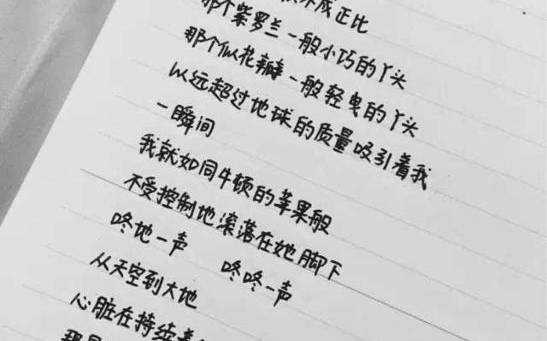 不成正比
那个紫罗兰一般小巧的丫头
那个似花瓣一般轻曳的丫头
以远超过地球的质量吸引着我
一瞬间
我就如同牛顿的苹果般
不受控制地滚落在她脚下
咚地一声 咚咚一声
从天空到大地
心脏在持续着